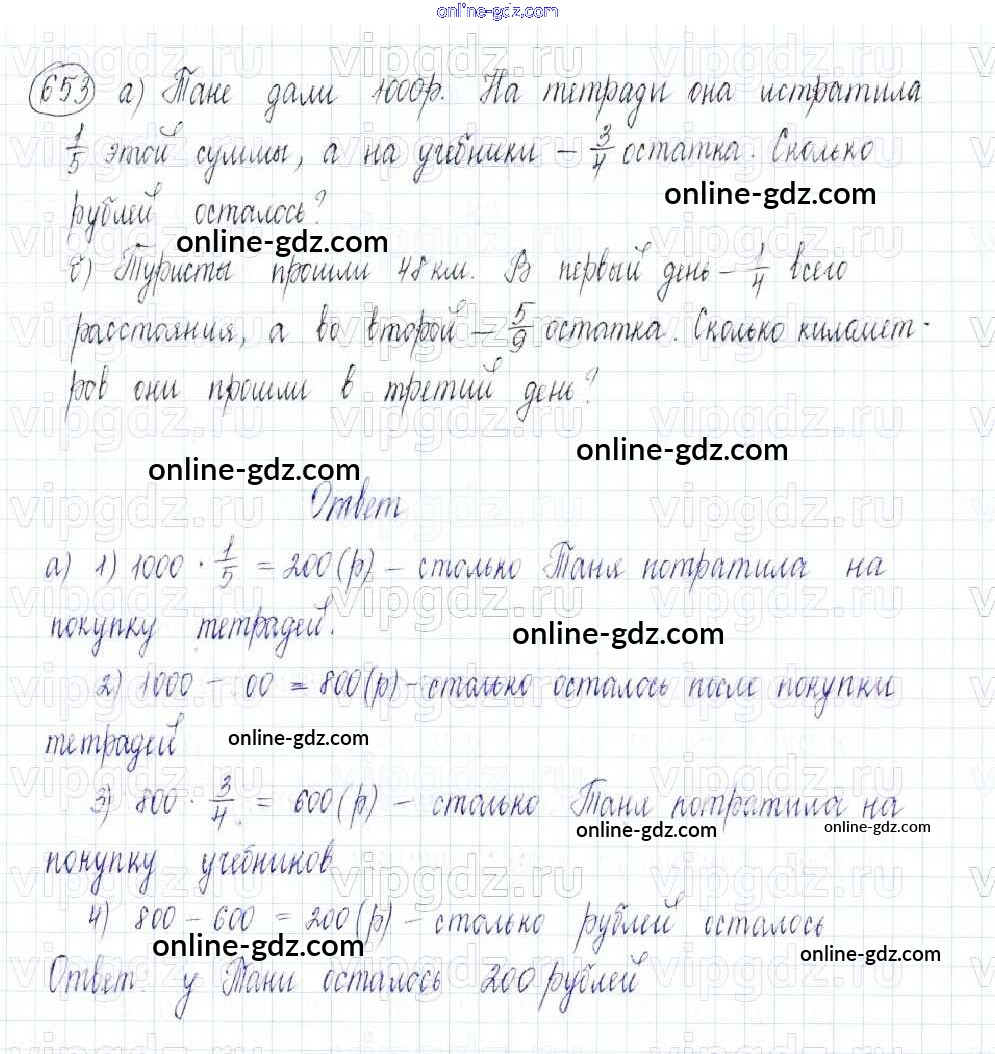 online-gdz.com
653 а) Тане дали 1000р. На тетради она истратила
1/5 этой суммы, а на учебники – 3/4 остатка. Сколько
online-gdz.com
рублей осталось?
online-gdz.com
б) Туристы прошли 48 км. В первый день – 1/4 всего
расстояния, а во второй – 5/9 остатка. Сколько километ-
ров они прошли в третий день?
online-gdz.com
online-gdz.com
Ответ
а) 1) 1000 · 1/5 = 200 (р) – столько Таня потратила на
покупку тетрадей.
online-gdz.com
2) 1000 – 00 = 800 (р) – столько осталось после покупки
тетрадей
online-gdz.com
3) 800 · 3/4 = 600 (р) – столько Таня потратила на
online-gdz.com
online-gdz.com
покупку учебников
4) 800 – 600 = 200 (р) – столько рублей осталось
online-gdz.com
online-gdz.com
Ответ: у Тани осталось 200 рублей